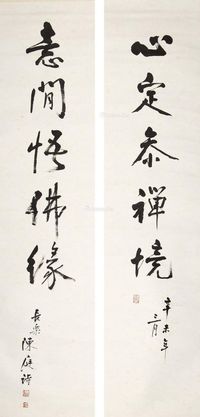 心定參禪境
辛未年
三月
意閒悟佛緣
長樂
陳庭詩